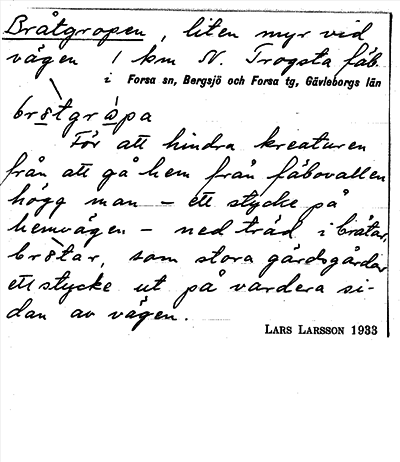 Bråtgropen, liten myr vid
vägen 1 km N. Trogsta fäb.
i Forsa sn, Bergsjö och Forsa tg, Gävleborgs län
För att hindra kreaturen
från att gå hem från fäbovallen
högg man – ett stycke på
hemvägen – ned träd i bråtar,
som stora gärdsgårdar
ett stycke ut på vardera si-
dan av vägen.
LARS LARSSON 1933